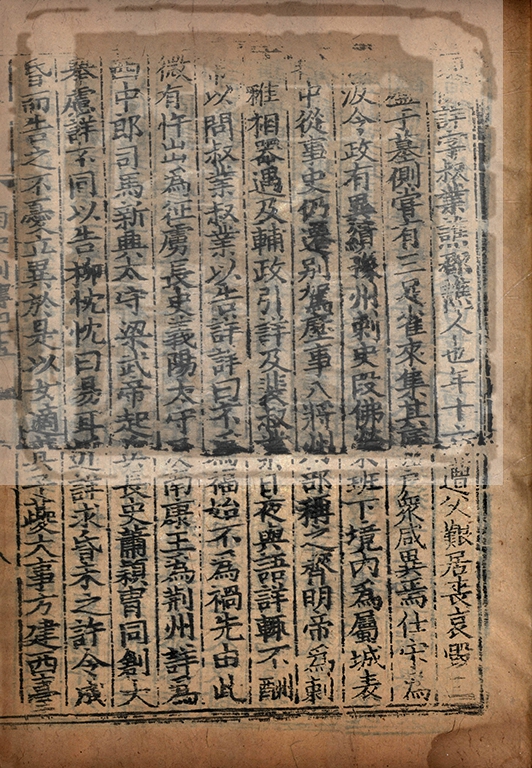 詳字叔業譙郡譙人也年十六遭父艱居喪哀毀三
廬于墓側嘗有三足雀來集其廬戶衆咸異焉仕宋為
汲令政有異績豫州刺史段佛榮班下境內為屬城表
中從事史仍遷別駕歷事八將州部稱之齊明帝為刺
雅相器遇及輔政引詳及裴叔業日夜與語詳輒不酬
帝以問叔業叔業以告詳詳曰不為福始不為禍先由此
微有忤出為征虜長史義陽太守及南康王為荊州詳為
西中郎司馬新興太守梁武帝起兵長史蕭穎胄同創大
舉慮詳不同以告柳忱忱曰易耳近詳求昏未之許令成
昏而告之不憂立異於是以女適其子夔大事方建西臺